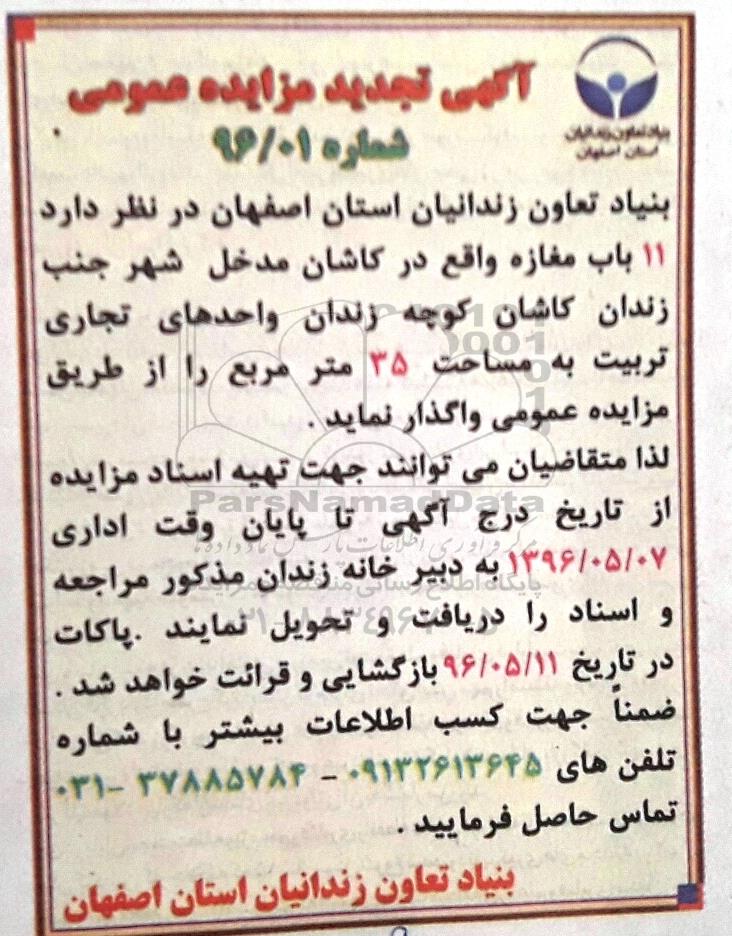 بنیاد تعاون زندانیان
استان اصفهان
آگهی تجدید مزایده عمومی
شماره ۹۶/۰۱
بنیاد تعاون زندانیان استان اصفهان در نظر دارد
۱۱ باب مغازه واقع در کاشان مدخل شهر جنب
زندان کاشان کوچه زندان واحدهای تجاری
تربیت به مساحت ۳۵ متر مربع را از طریق
مزایده عمومی واگذار نماید .
لذا متقاضیان می توانند جهت تهیه اسناد مزایده
از تاریخ درج آگهی تا پایان وقت اداری
۱۳۹۶/۰۵/۰۷ به دبیر خانه زندان مذکور مراجعه
و اسناد را دریافت و تحویل نمایند .پاکات
در تاریخ ۹۶/۰۵/۱۱ بازگشایی و قرائت خواهد شد .
ضمناً جهت کسب اطلاعات بیشتر با شماره
تلفن های ۰۹۱۳۲۶۱۳۶۴۵ - ۳۷۸۸۵۷۸۴ -۰۳۱
تماس حاصل فرمایید .
بنیاد تعاون زندانیان استان اصفهان
ParsNamadData